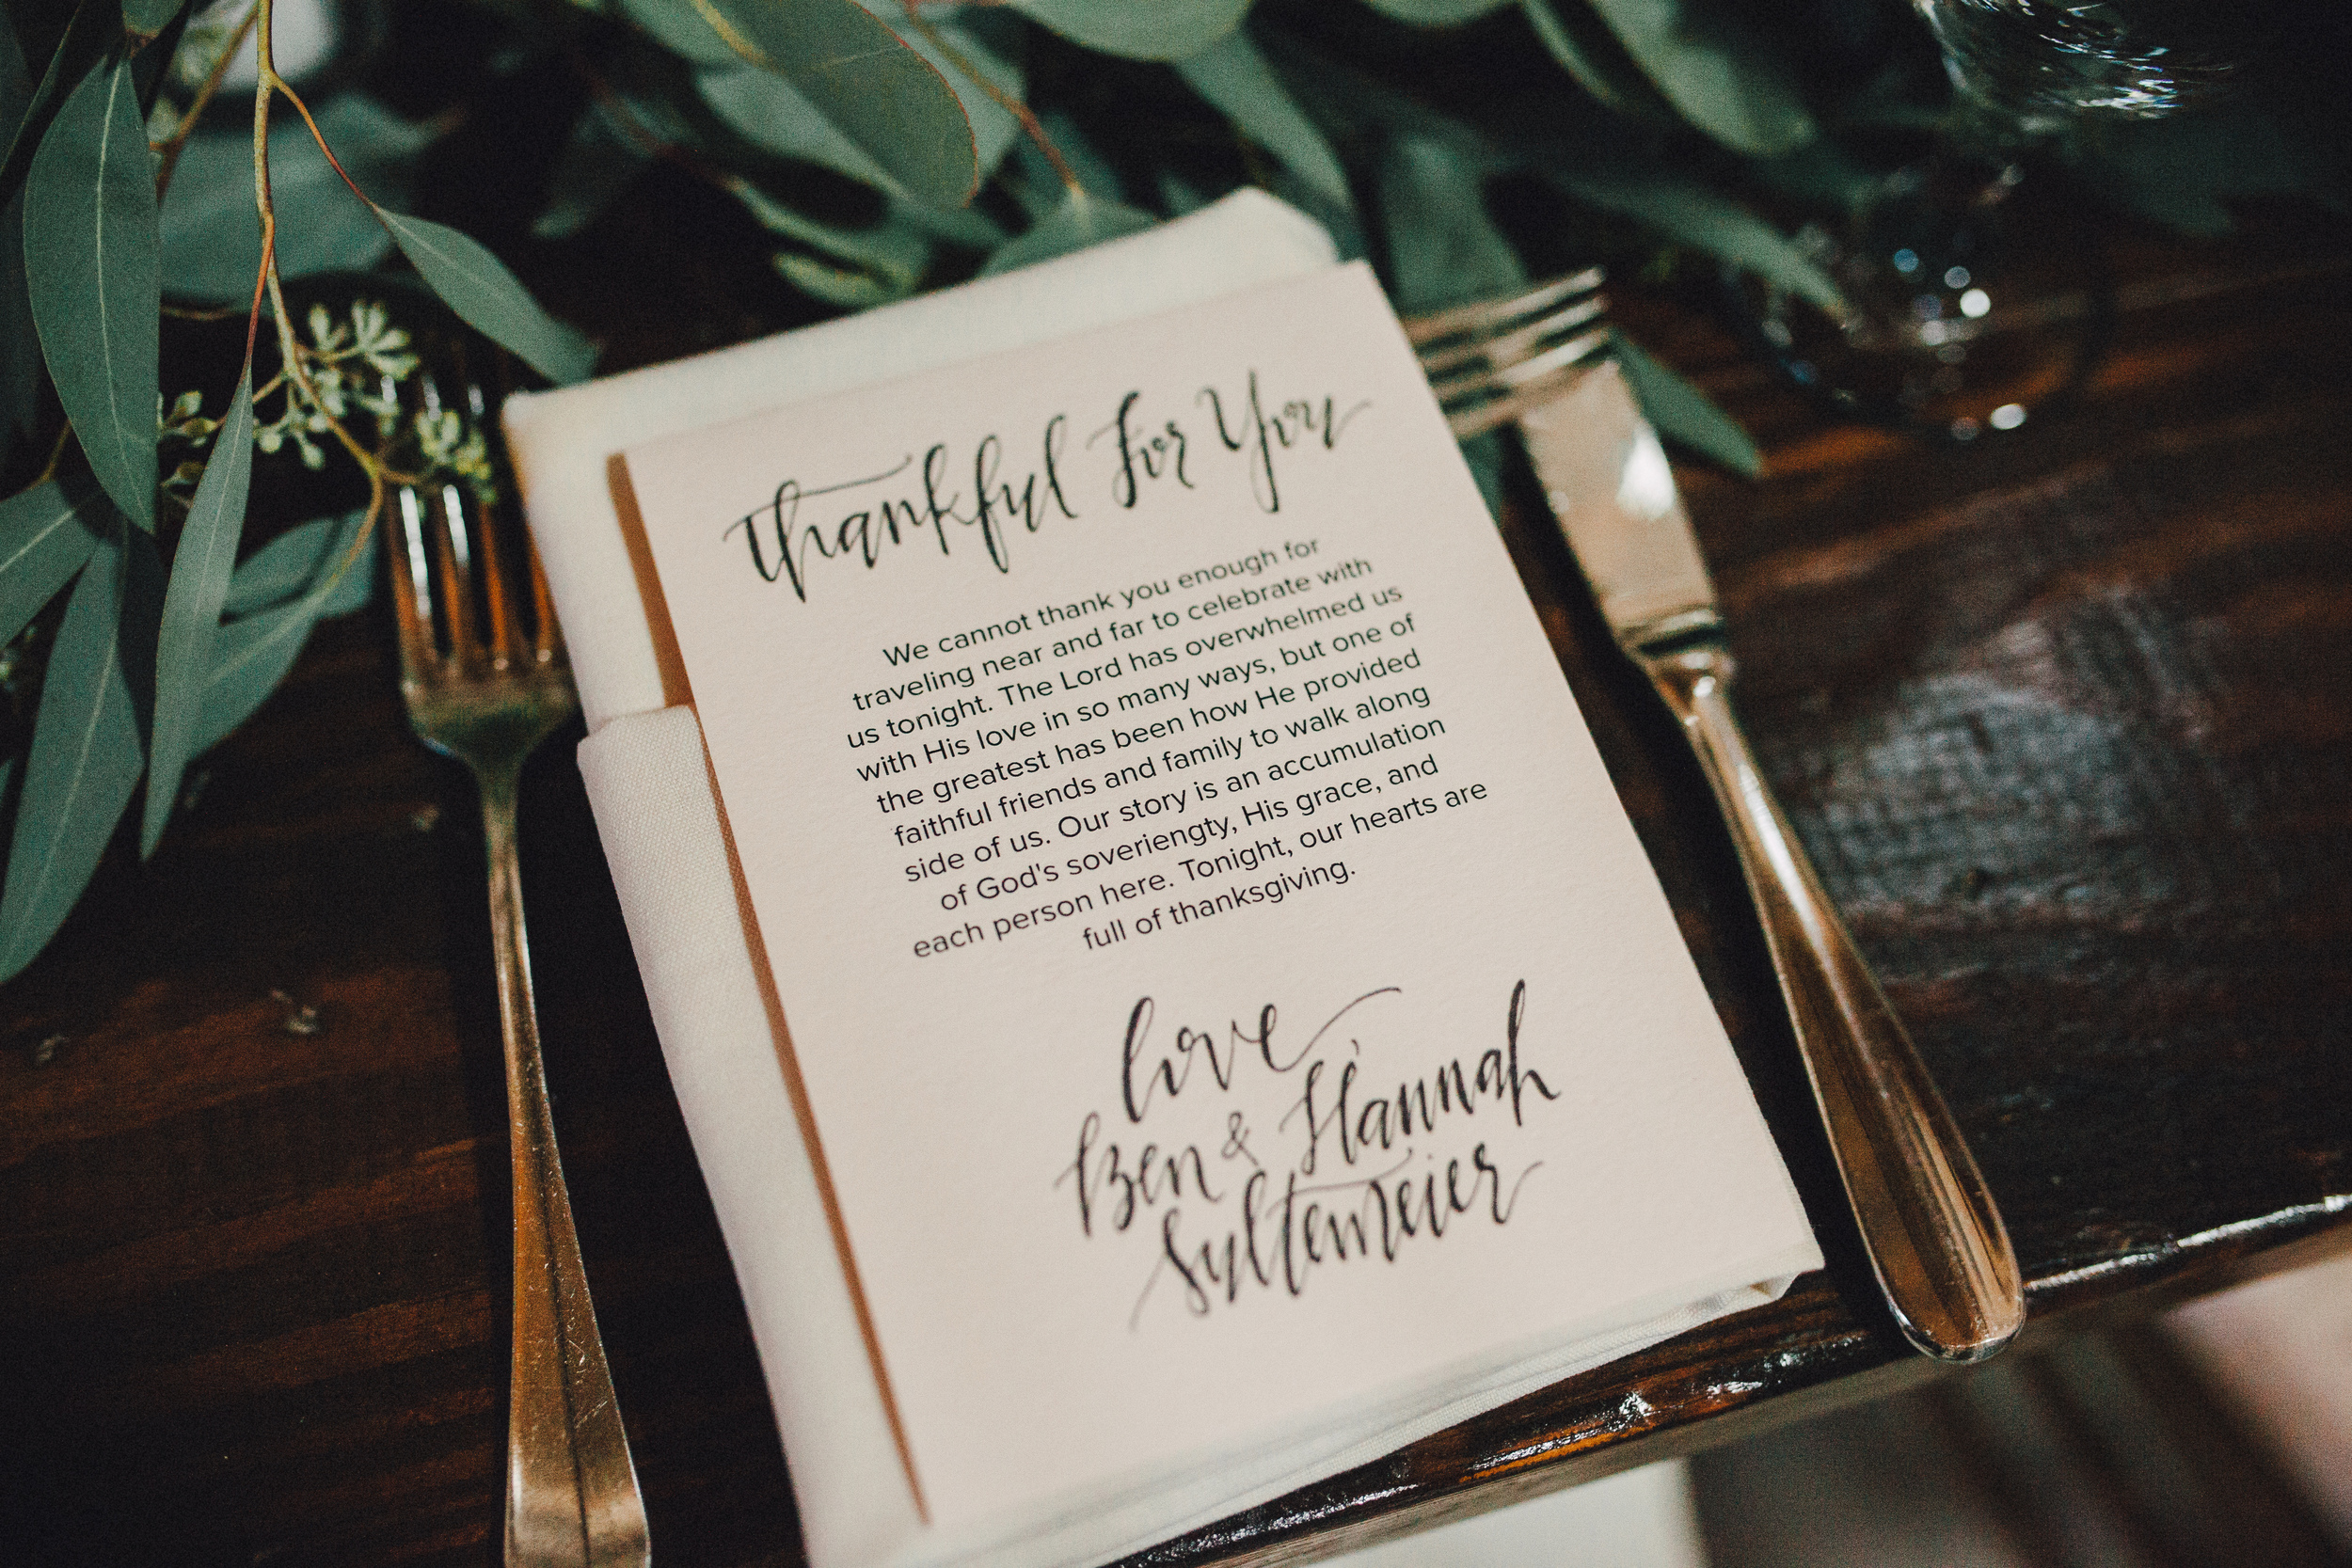 Thankful For You
We cannot thank you enough for
traveling near and far to celebrate with
us tonight. The Lord has overwhelmed us
with His love in so many ways, but one of
the greatest has been how He provided
faithful friends and family to walk along
side of us. Our story is an accumulation
of God's soveriengty, His grace, and
each person here. Tonight, our hearts are
full of thanksgiving.
love
Ben & Hannah
Sultemeier